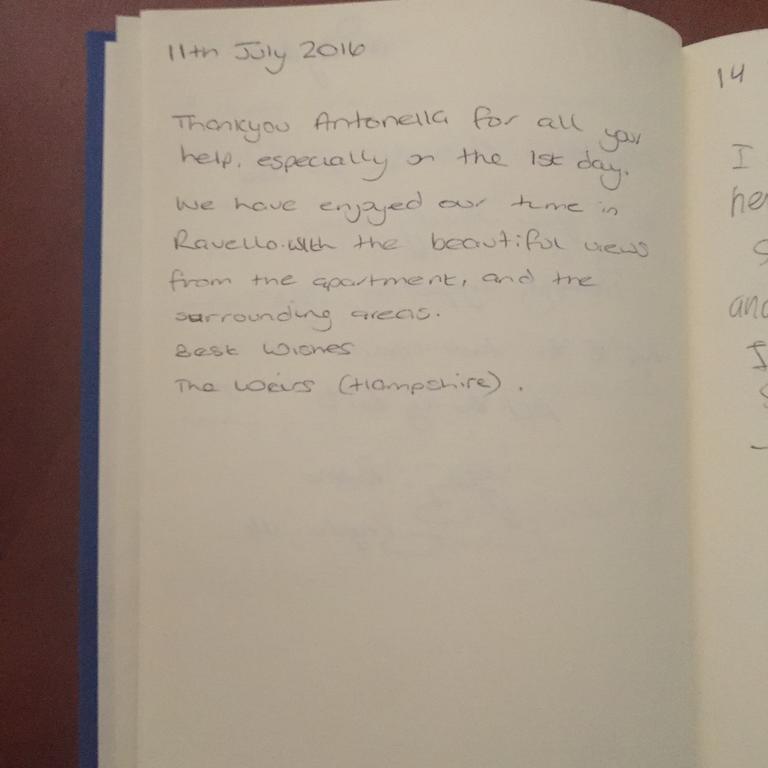 11th July 2016
Thankyou Antonella for all your
help, especially on the 1st day.
We have enjoyed our time in
Ravello. with the beautiful views
from the apartment, and the
surrounding areas.
Best Wishes
The Weirs (Hampshire).
14
I